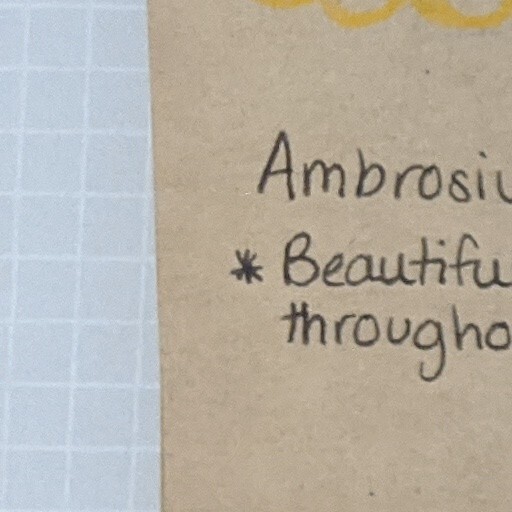 Ambrosiu
* Beautifu
througho